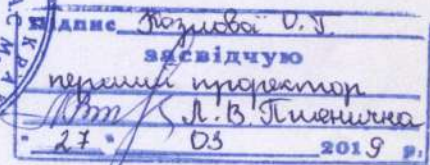 Підпис Козлова О.Г.
засвідчую
перший проректор
Л.В. Пшенична
" 27 " 03 2019 р.